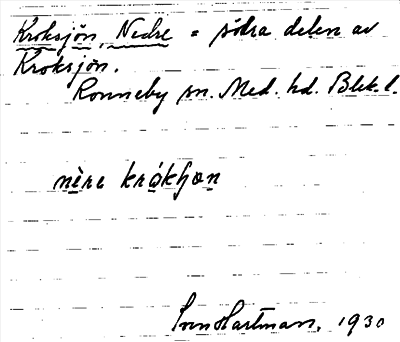 Kroksjön, Nedre = södra delen av
Kroksjön.
Ronneby sn. Med. hd. Blek. l.
nẹre krọkɧọn
Sven Hartman, 1930